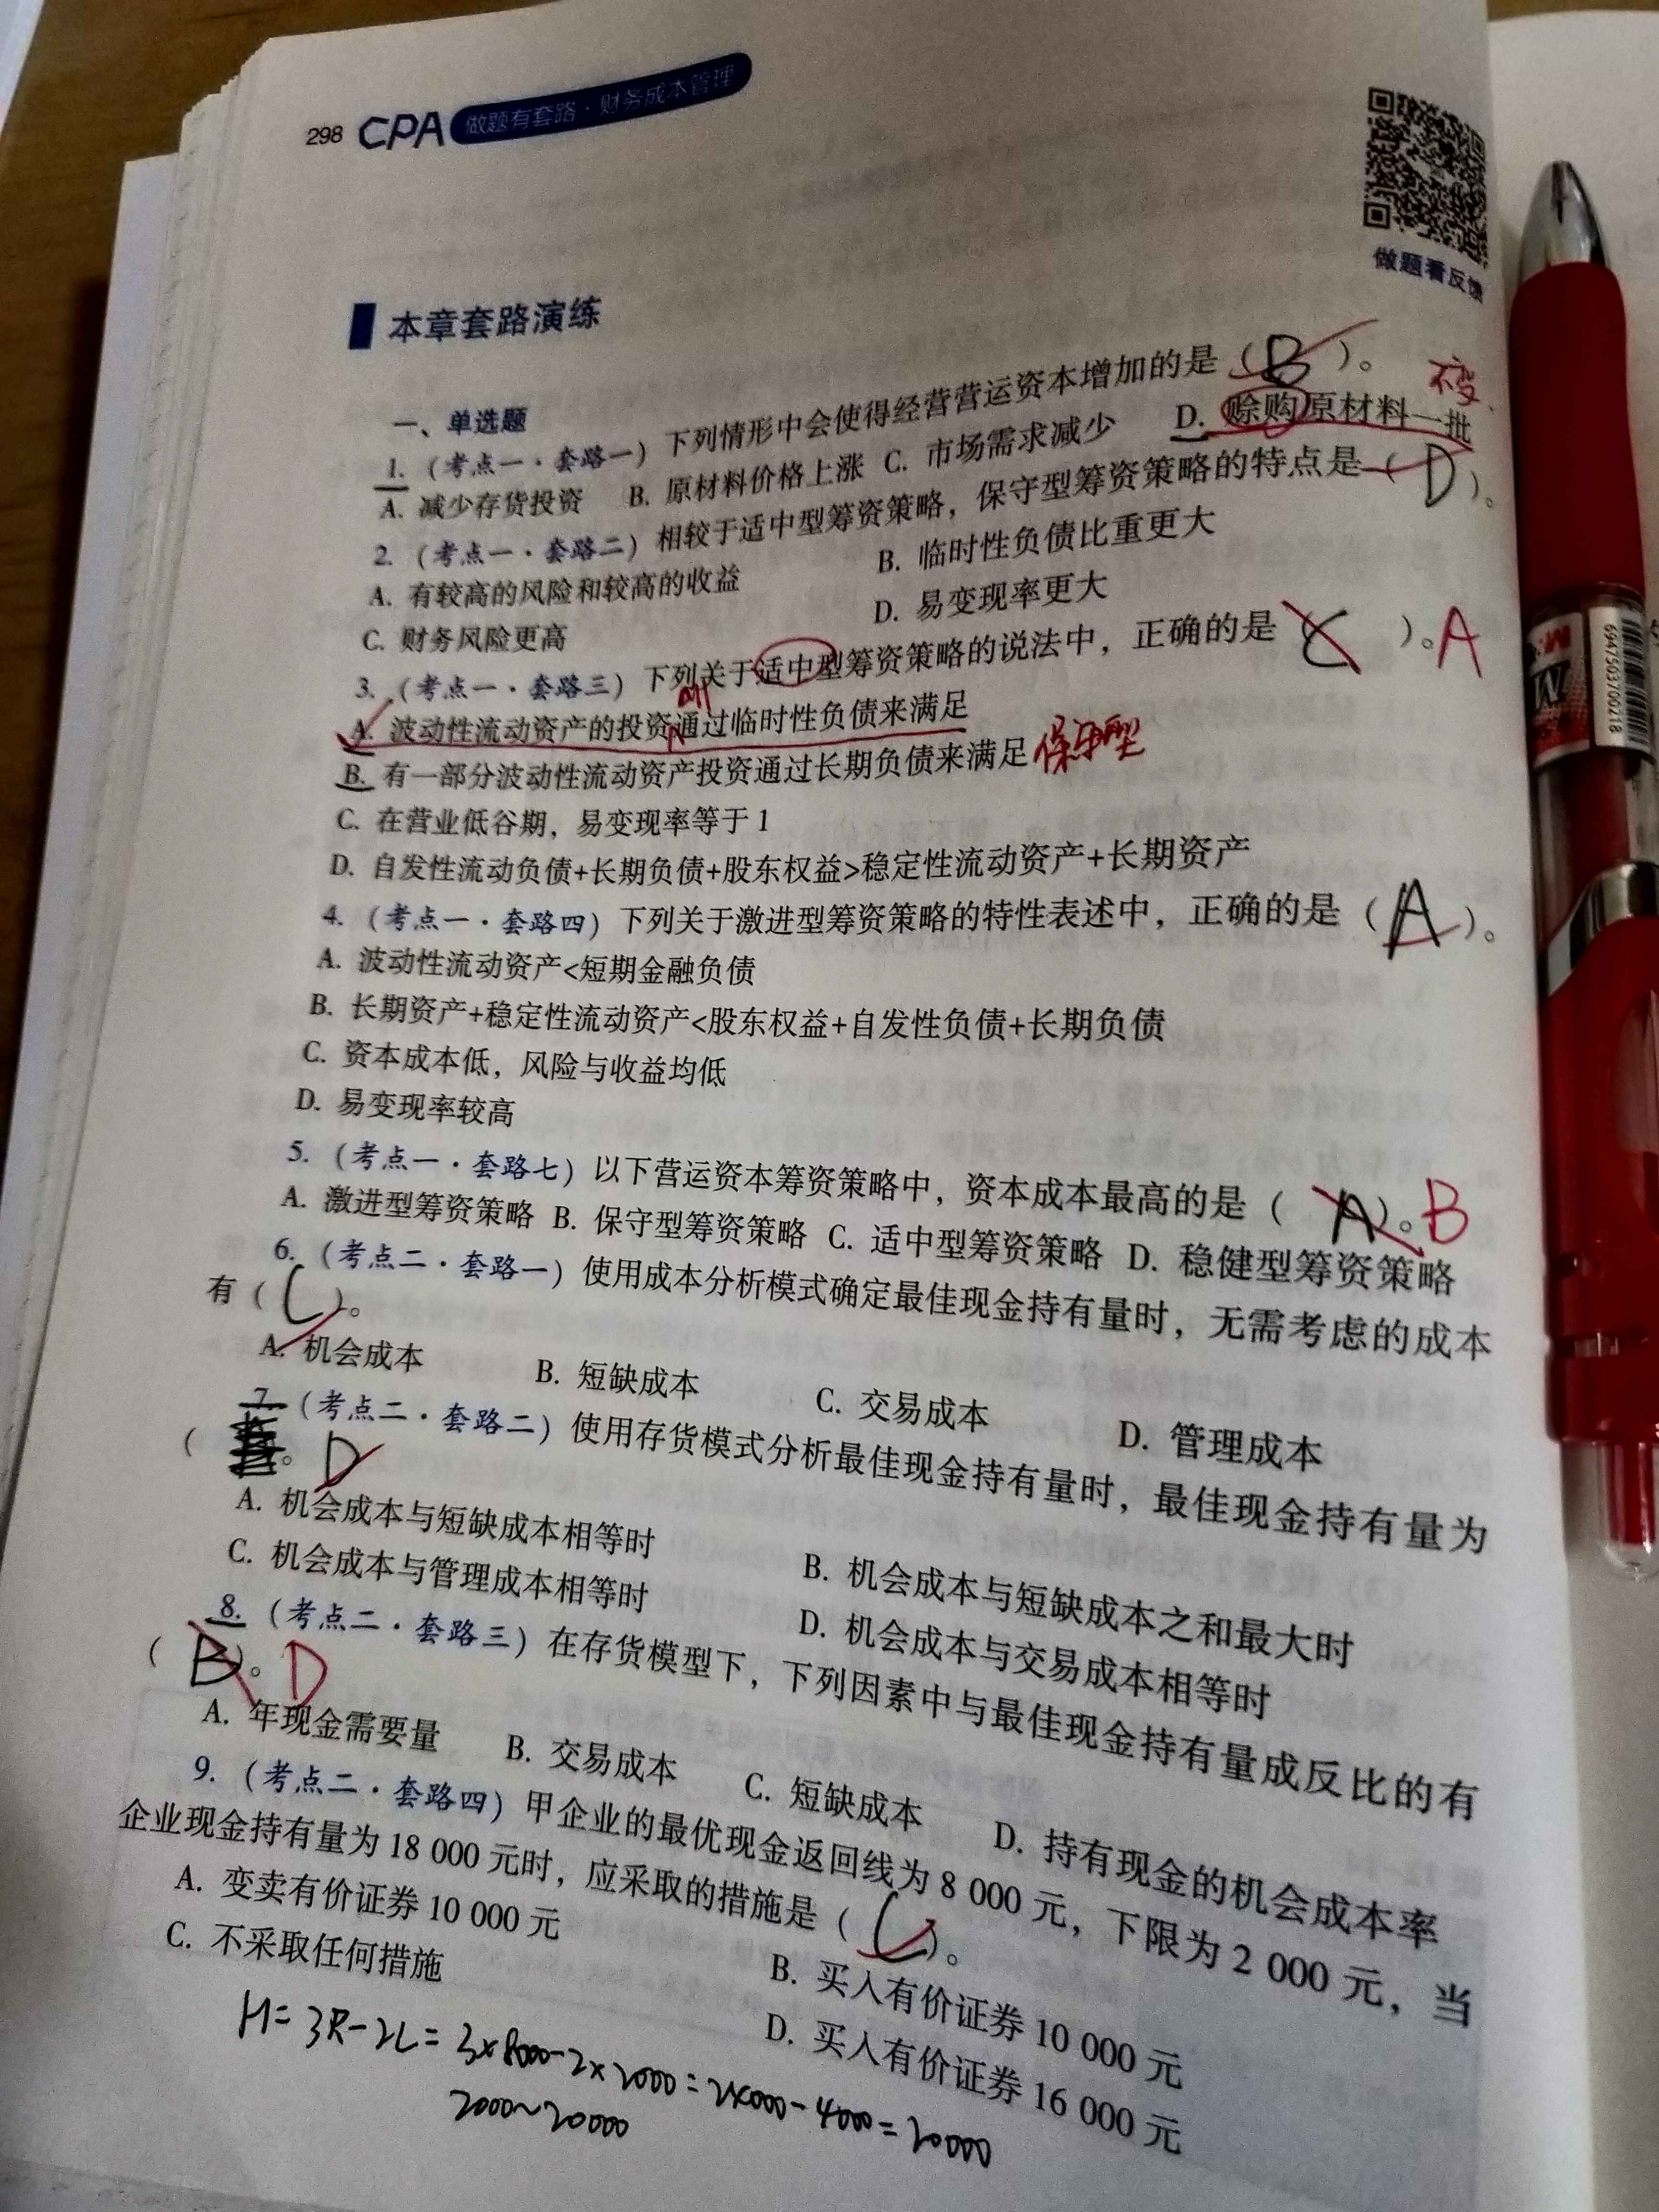 298 CPA 做题有套路·财务成本管理
做题看反馈
本章套路演练
一、单选题
1. (考点一·套路一) 下列情形中会使得经营营运资本增加的是 ( B )。
不变
A. 减少存货投资 B. 原材料价格上涨 C. 市场需求减少 D. 赊购原材料一批
2. (考点一·套路二) 相较于适中型筹资策略，保守型筹资策略的特点是 ( D )。
A. 有较高的风险和较高的收益 B. 临时性负债比重更大
C. 财务风险更高 D. 易变现率更大
3. (考点一·套路三) 下列关于适中型筹资策略的说法中，正确的是 ( C )。A
all
A. 波动性流动资产的投资通过临时性负债来满足
B. 有一部分波动性流动资产投资通过长期负债来满足 保守型
C. 在营业低谷期，易变现率等于 1
D. 自发性流动负债+长期负债+股东权益>稳定性流动资产+长期资产
4. (考点一·套路四) 下列关于激进型筹资策略的特性表述中，正确的是 ( A )。
A. 波动性流动资产<短期金融负债
B. 长期资产+稳定性流动资产<股东权益+自发性负债+长期负债
C. 资本成本低，风险与收益均低
D. 易变现率较高
5. (考点一·套路七) 以下营运资本筹资策略中，资本成本最高的是 ( A )。B
A. 激进型筹资策略 B. 保守型筹资策略 C. 适中型筹资策略 D. 稳健型筹资策略
6. (考点二·套路一) 使用成本分析模式确定最佳现金持有量时，无需考虑的成本
有 ( C )。
A. 机会成本 B. 短缺成本 C. 交易成本 D. 管理成本
7. (考点二·套路二) 使用存货模式分析最佳现金持有量时，最佳现金持有量为
( 。 D
A. 机会成本与短缺成本相等时 B. 机会成本与短缺成本之和最大时
C. 机会成本与管理成本相等时 D. 机会成本与交易成本相等时
8. (考点二·套路三) 在存货模型下，下列因素中与最佳现金持有量成反比的有
( B )。D
A. 年现金需要量 B. 交易成本 C. 短缺成本 D. 持有现金的机会成本率
9. (考点二·套路四) 甲企业的最优现金返回线为 8 000 元，下限为 2 000 元，当
企业现金持有量为 18 000 元时，应采取的措施是 ( C )。
A. 变卖有价证券 10 000 元 B. 买入有价证券 10 000 元
C. 不采取任何措施 D. 买入有价证券 16 000 元
H=3R-2L=3×8000-2×2000=24000-4000=20000
2000~20000
6947503700218